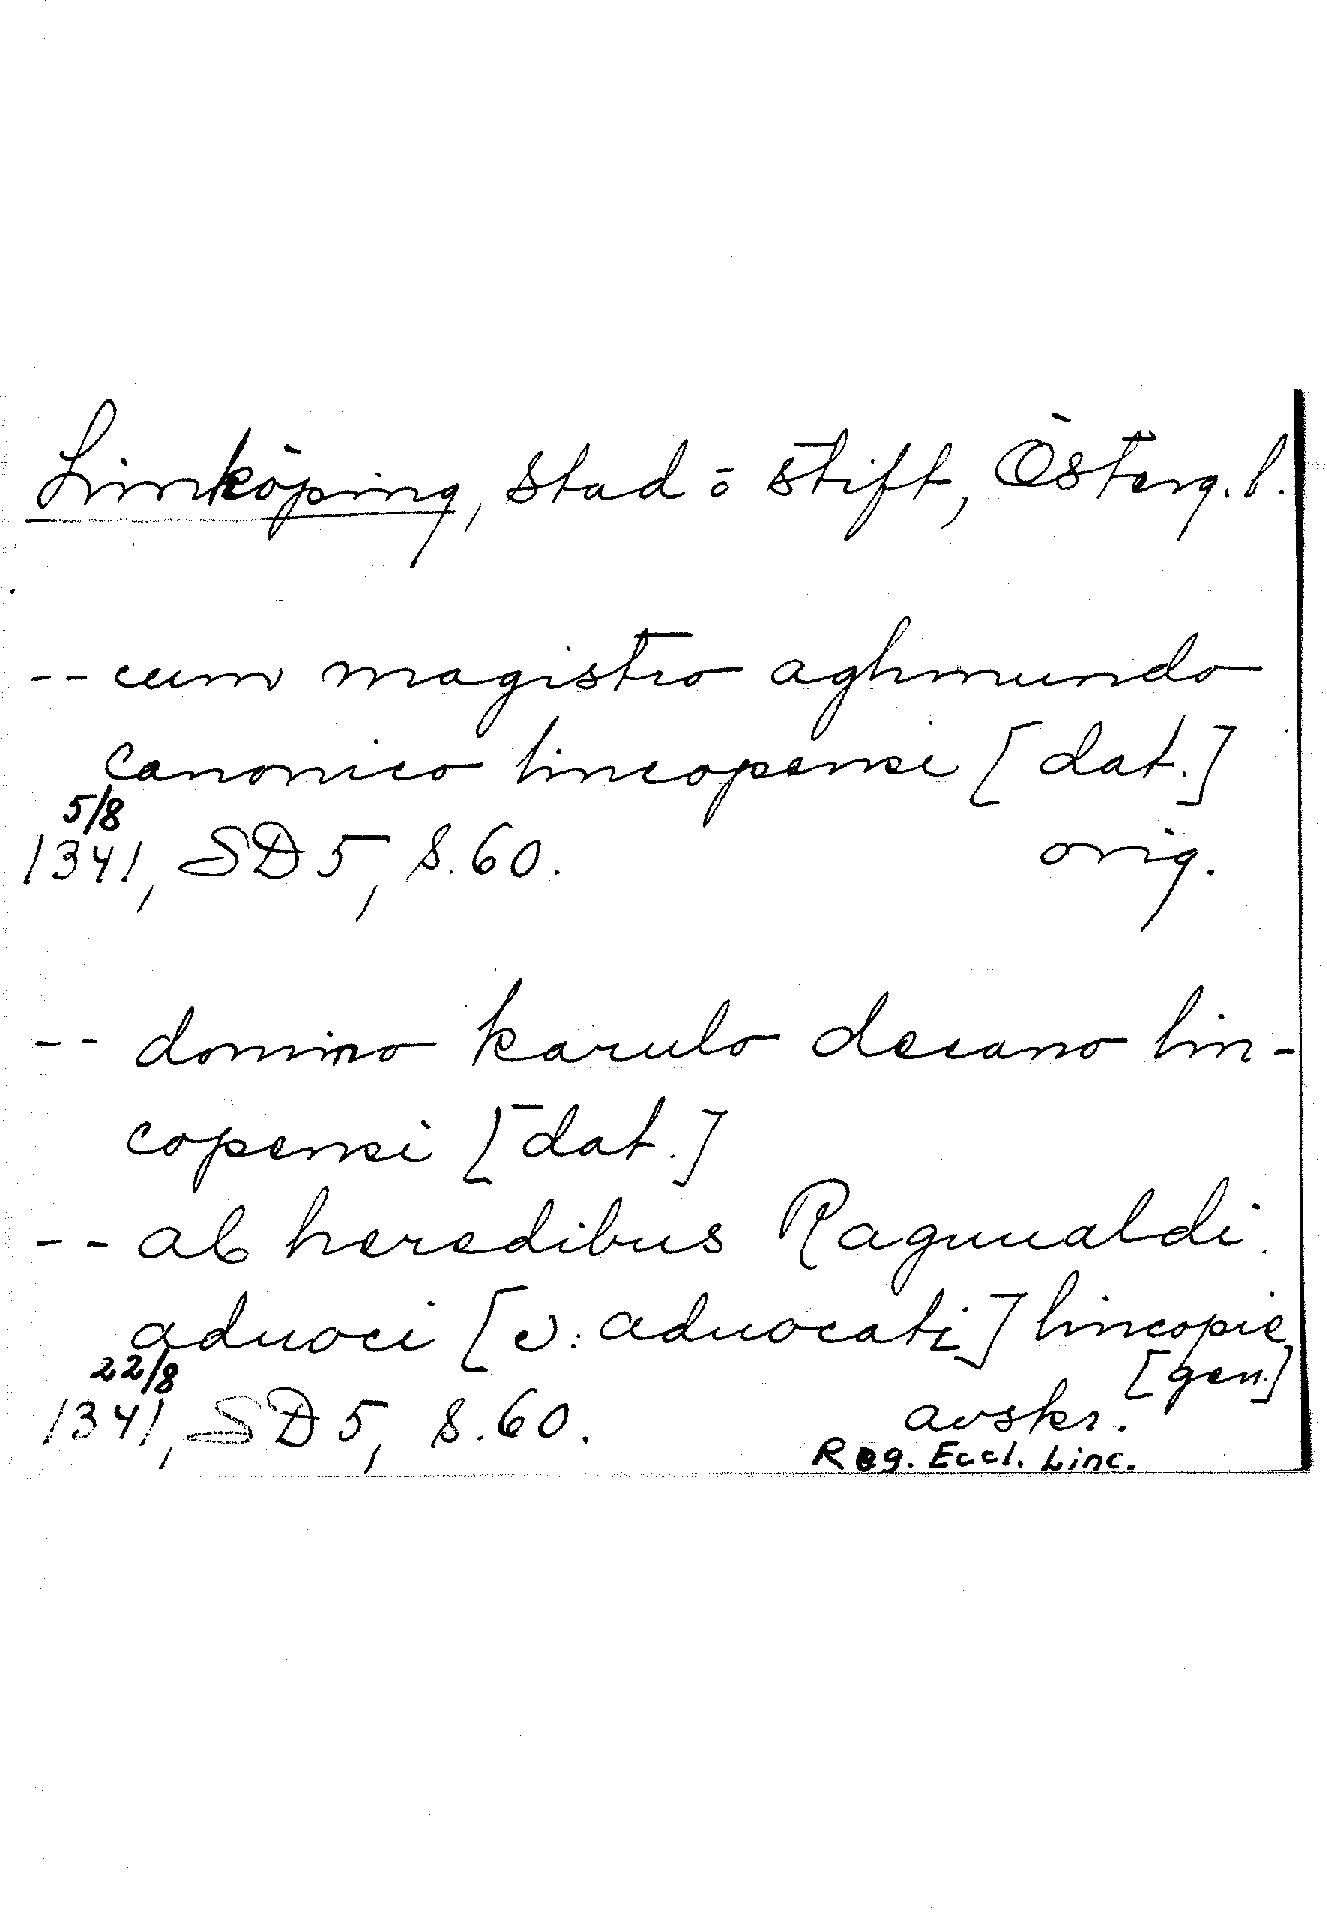 Linköping, stad o stift, Österg. l.
-- cum magistro aghmundo
canonico lincopensi [dat.]
5/8
1341, SD 5, s. 60. orig.
-- domino karulo decano lin-
copensi [dat.]
-- ab heredibus Raguualdi
aduoci [ɔ: aduocati] lincopie
[gen.]
22/8
1341, SD 5, s. 60. avskr.
Reg. Eccl. Linc.